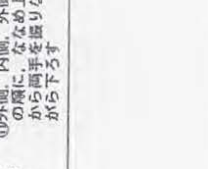 ①外側,内側,外側
の順に,ななめ上
から両手を振りな
がら下ろす